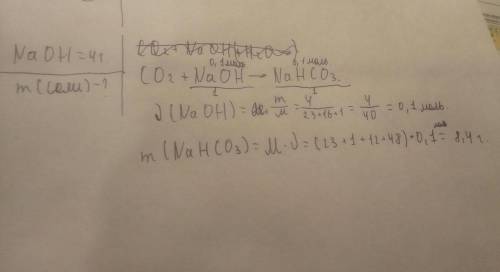 NaOH = 4г.
m(соли) - ?
0,1 моль 0,1 моль
CO₂ + NaOH → NaHCO₃.
1 1
ν(NaOH) = m/M = 4/23+16+1 = 4/40 = 0,1 моль.
m(NaHCO₃) = M·ν = (23+1+12+48)·0,1 = 8,4 г.